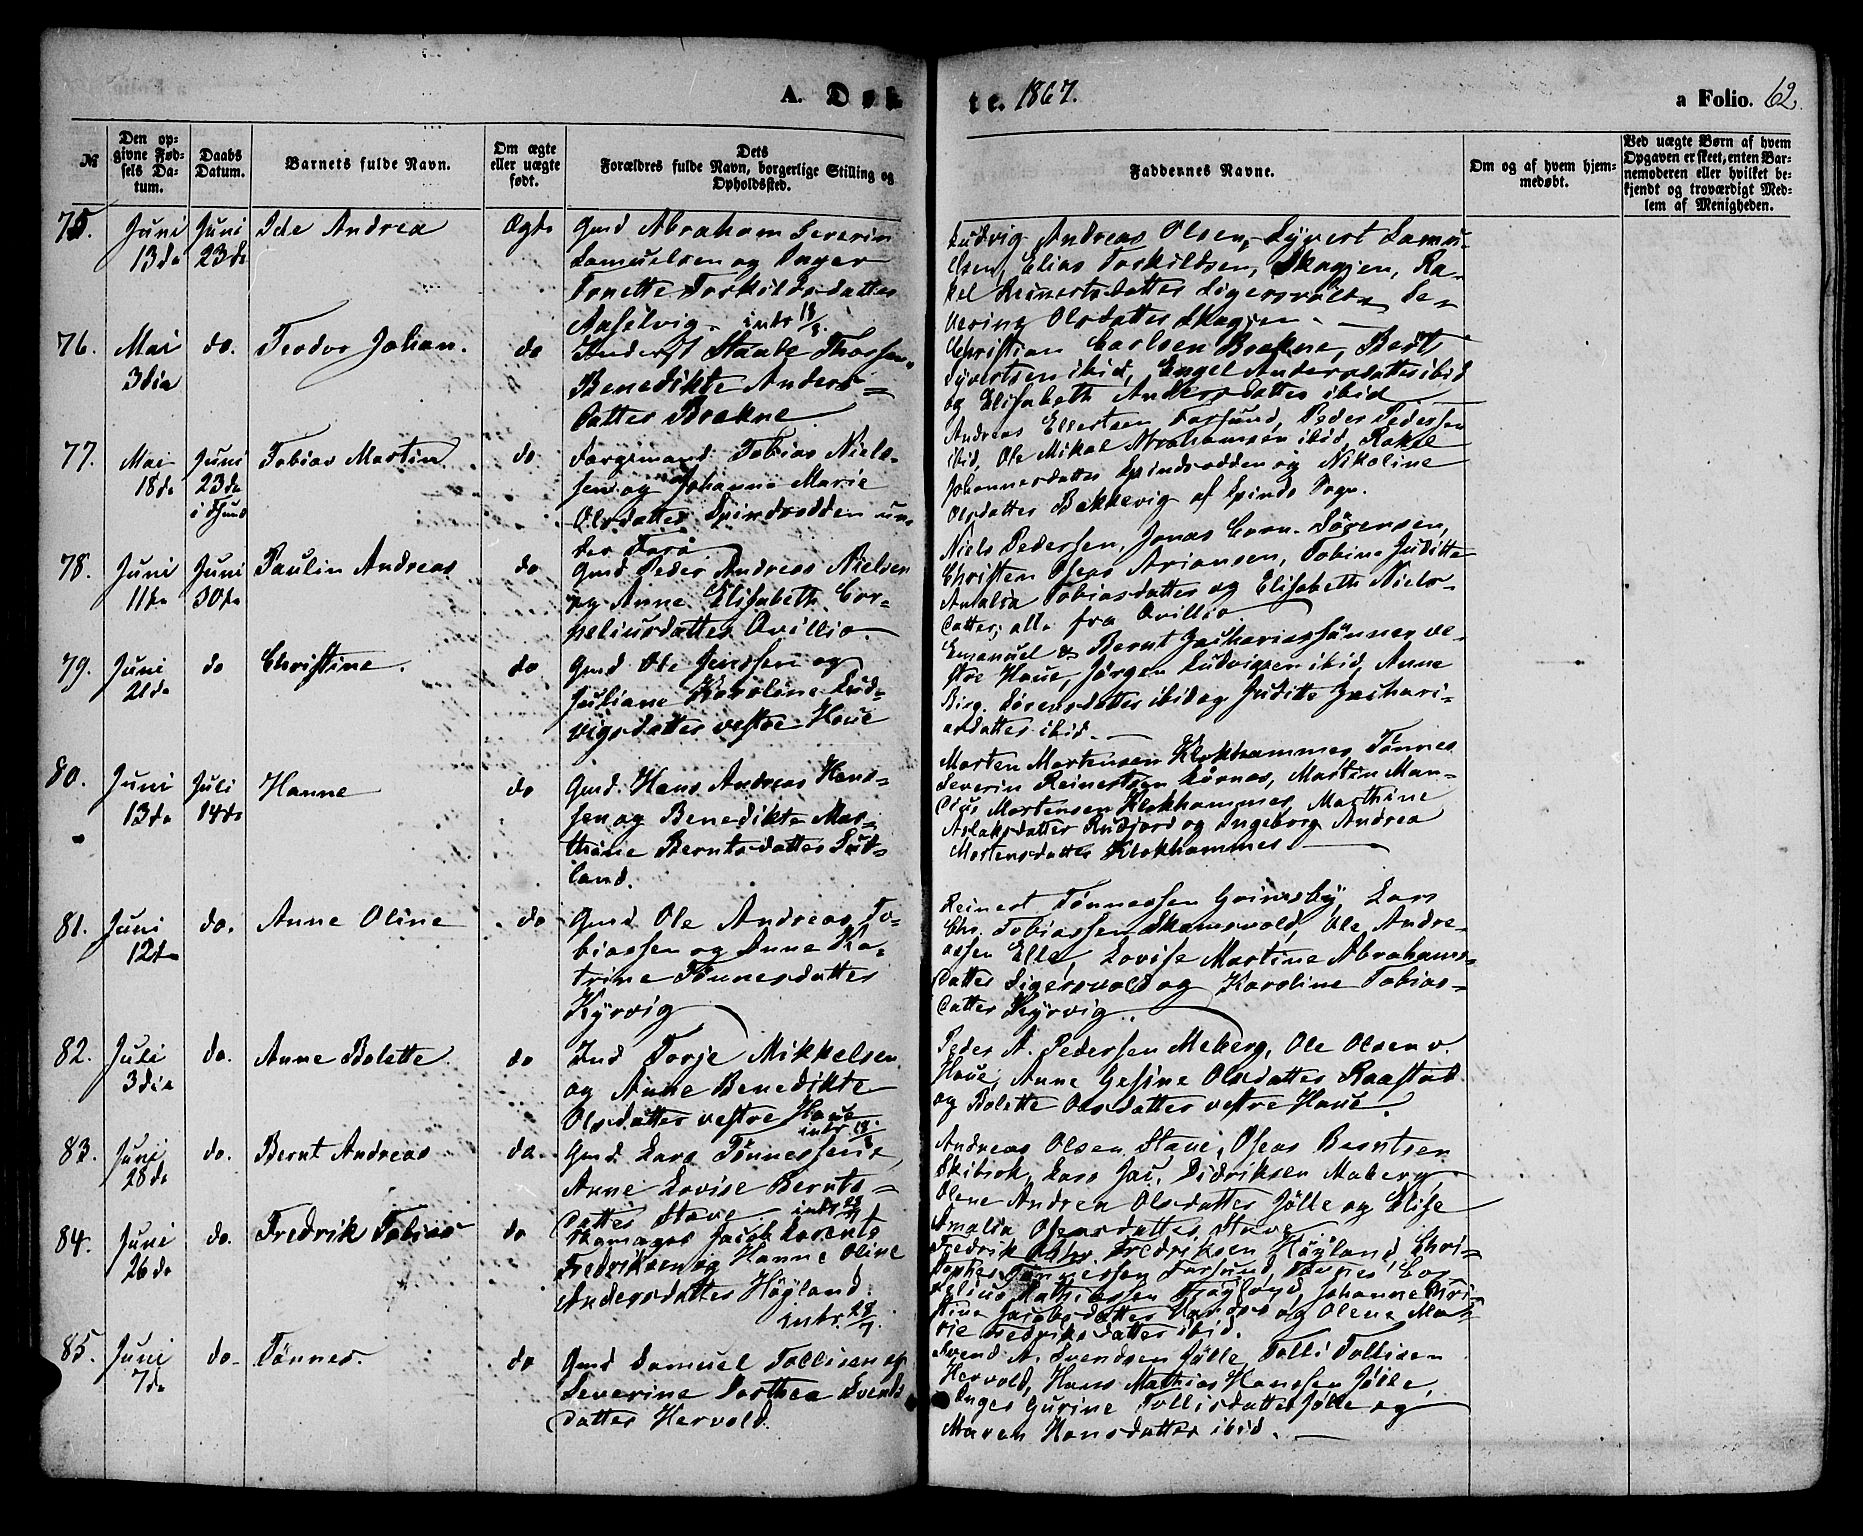 A. Døbte. 1867.
a Folio. 62.
№
Den opgivne Fødsels Datum.
Daabs Datum.
Barnets fulde Navn.
Om ægte eller uægte født.
Dets Forældres fulde Navn, borgerlige Stilling og Opholdssted.
Faddernes Navne.
Om og af hvem hjemmedøbt.
Ved uægte Børn af hvem Opgaven er skeet, enten Barnemoderen eller hvilket bekjendt og troværdigt Medlem af Menigheden.
75. Juni 13de
Juni 23de
Ide Andrea
Ægte
Gmd Abraham Severin
Samuelsen og Inger
Tonette Torkildsdatter
Aaselvig. intr 18/8
Ludvig Andreas Olsen, Syvert Samu-
elsen, Elias Torkildsen, Skagjen, Ra-
kel Reinertsdatter Sigersvold, Se-
verine Olsdatter Skagjen.
76. Mai 3die
do.
Teodor Johan.
do
Staale Thorsen,
Benedikte Anders-
datter Brekne
Christian Carlsen Brekne, Bedt
Syvertsen ibid, Engel Andersdatter ibid
og Elisabeth Andersdatter ibid
77. Mai 18de
Juni 23de
i Fsund
Tobias Martin
do
Tobias Niels-
sen og Johanne Marie
Olsdatter Spindsodden un-
der Farø
Andreas Ellertsen Farsund, Peder Pedersen
ibid, Ole Mikal Abrahamsen ibid, Rakel
Johannesdatter Spindsodden og Nikoline
Olsdatter Bekkevig af Spinds Sogn.
78. Juni 11te
Juni 30te
Paulin Andreas
do
Gmd Peder Andreas Nielsen
og Anne Elisabeth Cor-
neliusdatter Ovillio.
Niels Pedersen, Jonas Corn. Sørensen,
Christen Oseas Ariansen, Tobine Juditte
Amalia Tobiasdatter og Elisabeth Niels-
datter, alle fra Ovillio
79. Juni 21de
do
Christine.
do
Gmd. Ole Jenssen og
Juliane Karoline Lud-
vigsdatter vestre Haue
Emanuel & Bernt Zachariassønner ve-
stre Haue, Jørgen Ludvigsen ibid, Anne
Birg. Sørensdatter ibid og Juditte Zachari-
asdatter ibid.
80. Juni 13de
Juli 14de
Hanne
do
Gmd. Hans Andreas Hans-
sen og Benedikte Mar-
thine Berntsdatter Lud-
land.
Morten Mortensen Klokhammer, Tønnes
Severin Reinertsen Lørnes, Martin Man-
dius Mortensen Klokhammer, Marthine
Aslaksdatter Rudjord og Ingeborg Andrea
Mortensdatter Klokhammer.
81. Juni 12te
do.
Anne Oline
do
Gmd Ole Andreas To-
biassen og Anne Ka-
trine Tønnesdatter
Kyrvig
Reinert Tønnessen Grimsby, Lars
Chr. Tobiassen Skamsvold, Ole Andre-
assen Elle, Lovise Martine Abrahams-
datter Sigersvold og Karoline Tobias-
datter Kyrvig.
82. Juli 3die
do.
Anne Bolette
do
Ind Torje Mikkelsen
og Anne Benedikte
Olsdatter vestre Haue
intr 18/8
Peder A. Pedersen Meberg, Ole Olsen v.
Haue, Anne Gesine Olsdatter Raastad
og Bolette Olsdatter vestre Haue.
83. Juni 28de
do.
Bernt Andreas
do.
Gmd. Lars Tønnessen &
Anne Lovise Bernts-
datter Stave
Andreas Olsen Stave, Oseas Berntsen
Skibrok, Lars Jac. Didriksen Maberg,
Olene Andrea Olsdatter Jølle og Elise
Amalia Oseasdatter Stave
84. Juni 26de
do.
Fredrik Tobias
do
Skomager Jacob Lorents
Fredriksen og Hanne Oline
Andersdatter Høyland.
intr. 28/7.
Fredrik Fredriksen Høyland, Chri-
stopher Tønnessen Farsund, Tønnes Cor-
nelius Mathiassen Johanne Kri-
stine Jacobsdatter og Olene Ma-
rie Fredriksdatter ibid.
85. Juni 7de
do.
Tønnes.
do
Gmd Samuel Tollisen og
Severine Dorthea Svends
datter Hervold.
Svend A. Svendsen Jølle, Tolli Tollisen
Hervold, Hans Mathias Hanssen Jølle,
Inger Gurine Tollisdatter Jølle og
Maren Hansdatter ibid.